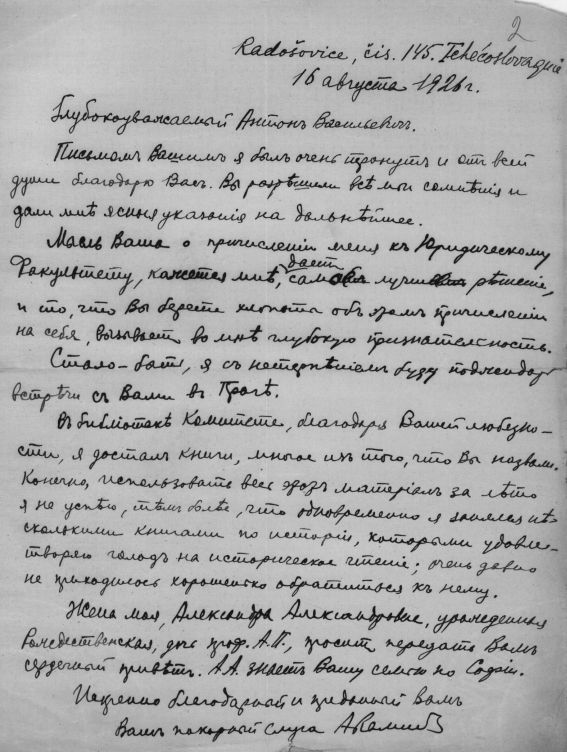 2
Radošovice, čis. 145. Tchécoslovaquie
16 августа 1926 г.
Глубокоуважаемый Антонъ Васильевичъ.
Письмомъ Вашимъ я былъ очень тронутъ и отъ всей
души благодарю Васъ. Вы разрѣшили всѣ мои сомнѣнія и
дали мнѣ ясныя указанія на дальнѣйшее.
Мысль Ваша о причисленіи меня къ Юридическому
Факультету, кажется мнѣ, даетъ самое лучшее рѣшеніе,
и то, что Вы берете хлопоты объ этомъ причисленіи
на себя, вызываетъ во мнѣ глубокую признательность.
Стало-быть, я съ нетерпѣніемъ буду поджидать
встрѣчи съ Вами въ Прагѣ.
Въ библіотекѣ Комитета, благодаря Вашей любезно-
сти, я досталъ книги, многое изъ того, что Вы назвали.
Конечно, использовать весь этотъ матеріалъ за лѣто
я не успѣю, тѣмъ болѣе, что одновременно я занялся нѣ-
сколькими книгами по исторіи, которыми удовле-
творяю голодъ на историческое чтеніе; очень давно
не приходилось хорошенько обратиться къ нему.
Жена моя, Александра Александровна, урожденная
Рождественская, дочь проф. А.П., проситъ передать Вамъ
сердечный привѣтъ. А.А. знаетъ Вашу семью по Софіи.
Искренно благодарный и преданный Вамъ
Вашъ покорный слуга